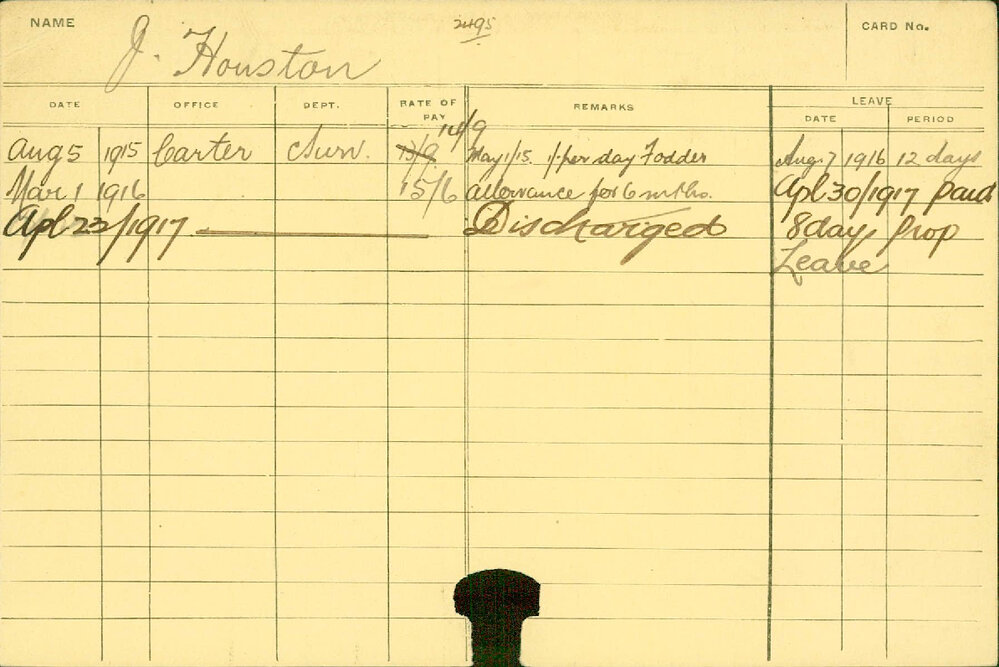 NAME J. Houston 2495 CARD No.
DATE OFFICE DEPT. RATE OF PAY REMARKS LEAVE
DATE PERIOD
14/9
Aug 5 1915 Carter Surv. 13/9 May 1/15. 1/- per day Fodder Aug. 7 1916 12 days
Mar 1 1916 15/6 allowance for 6 mths. Apl 30/1917 paid
Apl 23/1917 Discharged 8 days Prop
Leave